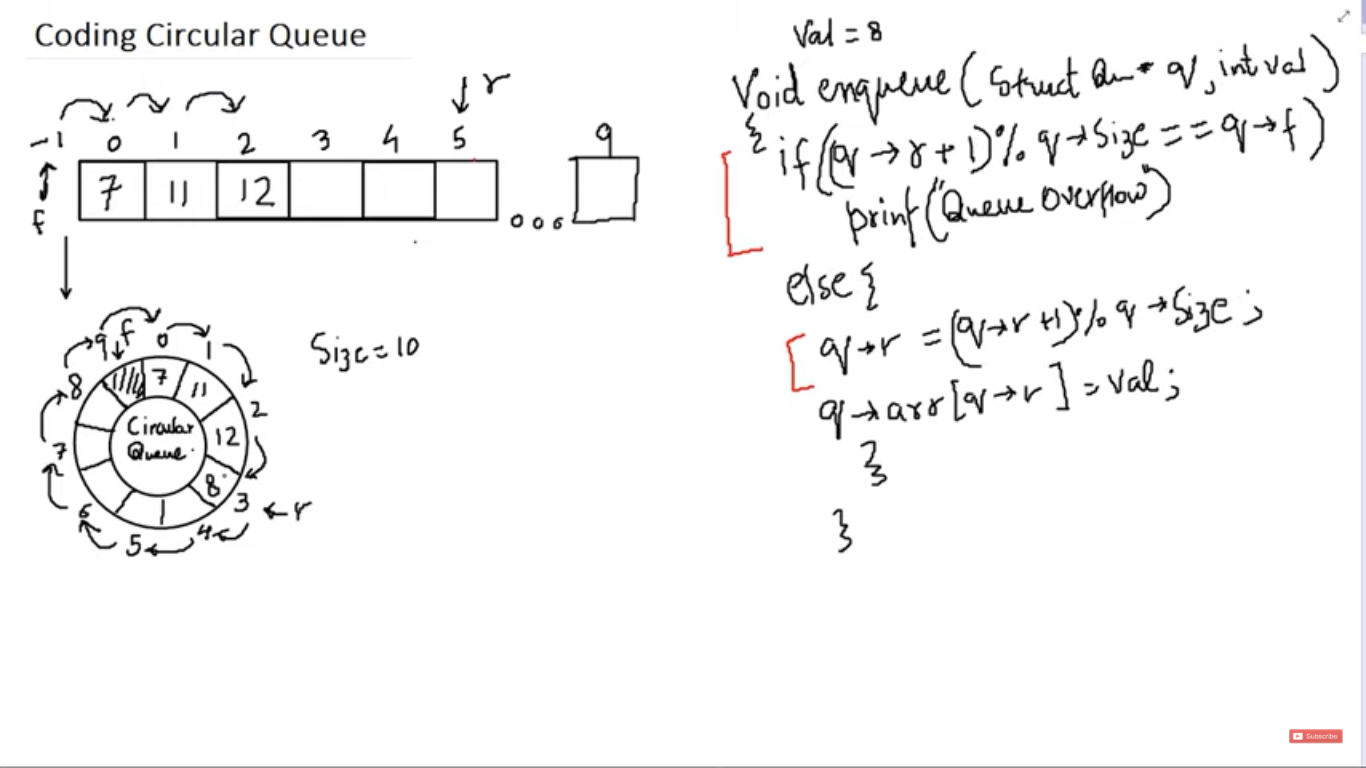 Coding Circular Queue
r
-1 0 1 2 3 4 5 9
7 11 12
f
Size = 10
9 f 0 1
8 7 11
2
Circular
Queue
12
7
8
3 ← r
6 5 4
Val = 8
Void enqueue (Struct Qu * q, int val)
{ if((q→r+1)% q→Size == q→f)
print("Queue Overflow")
else {
q→r = (q→r+1)% q→Size ;
q→arr[q→r] = val;
}
}
Subscribe